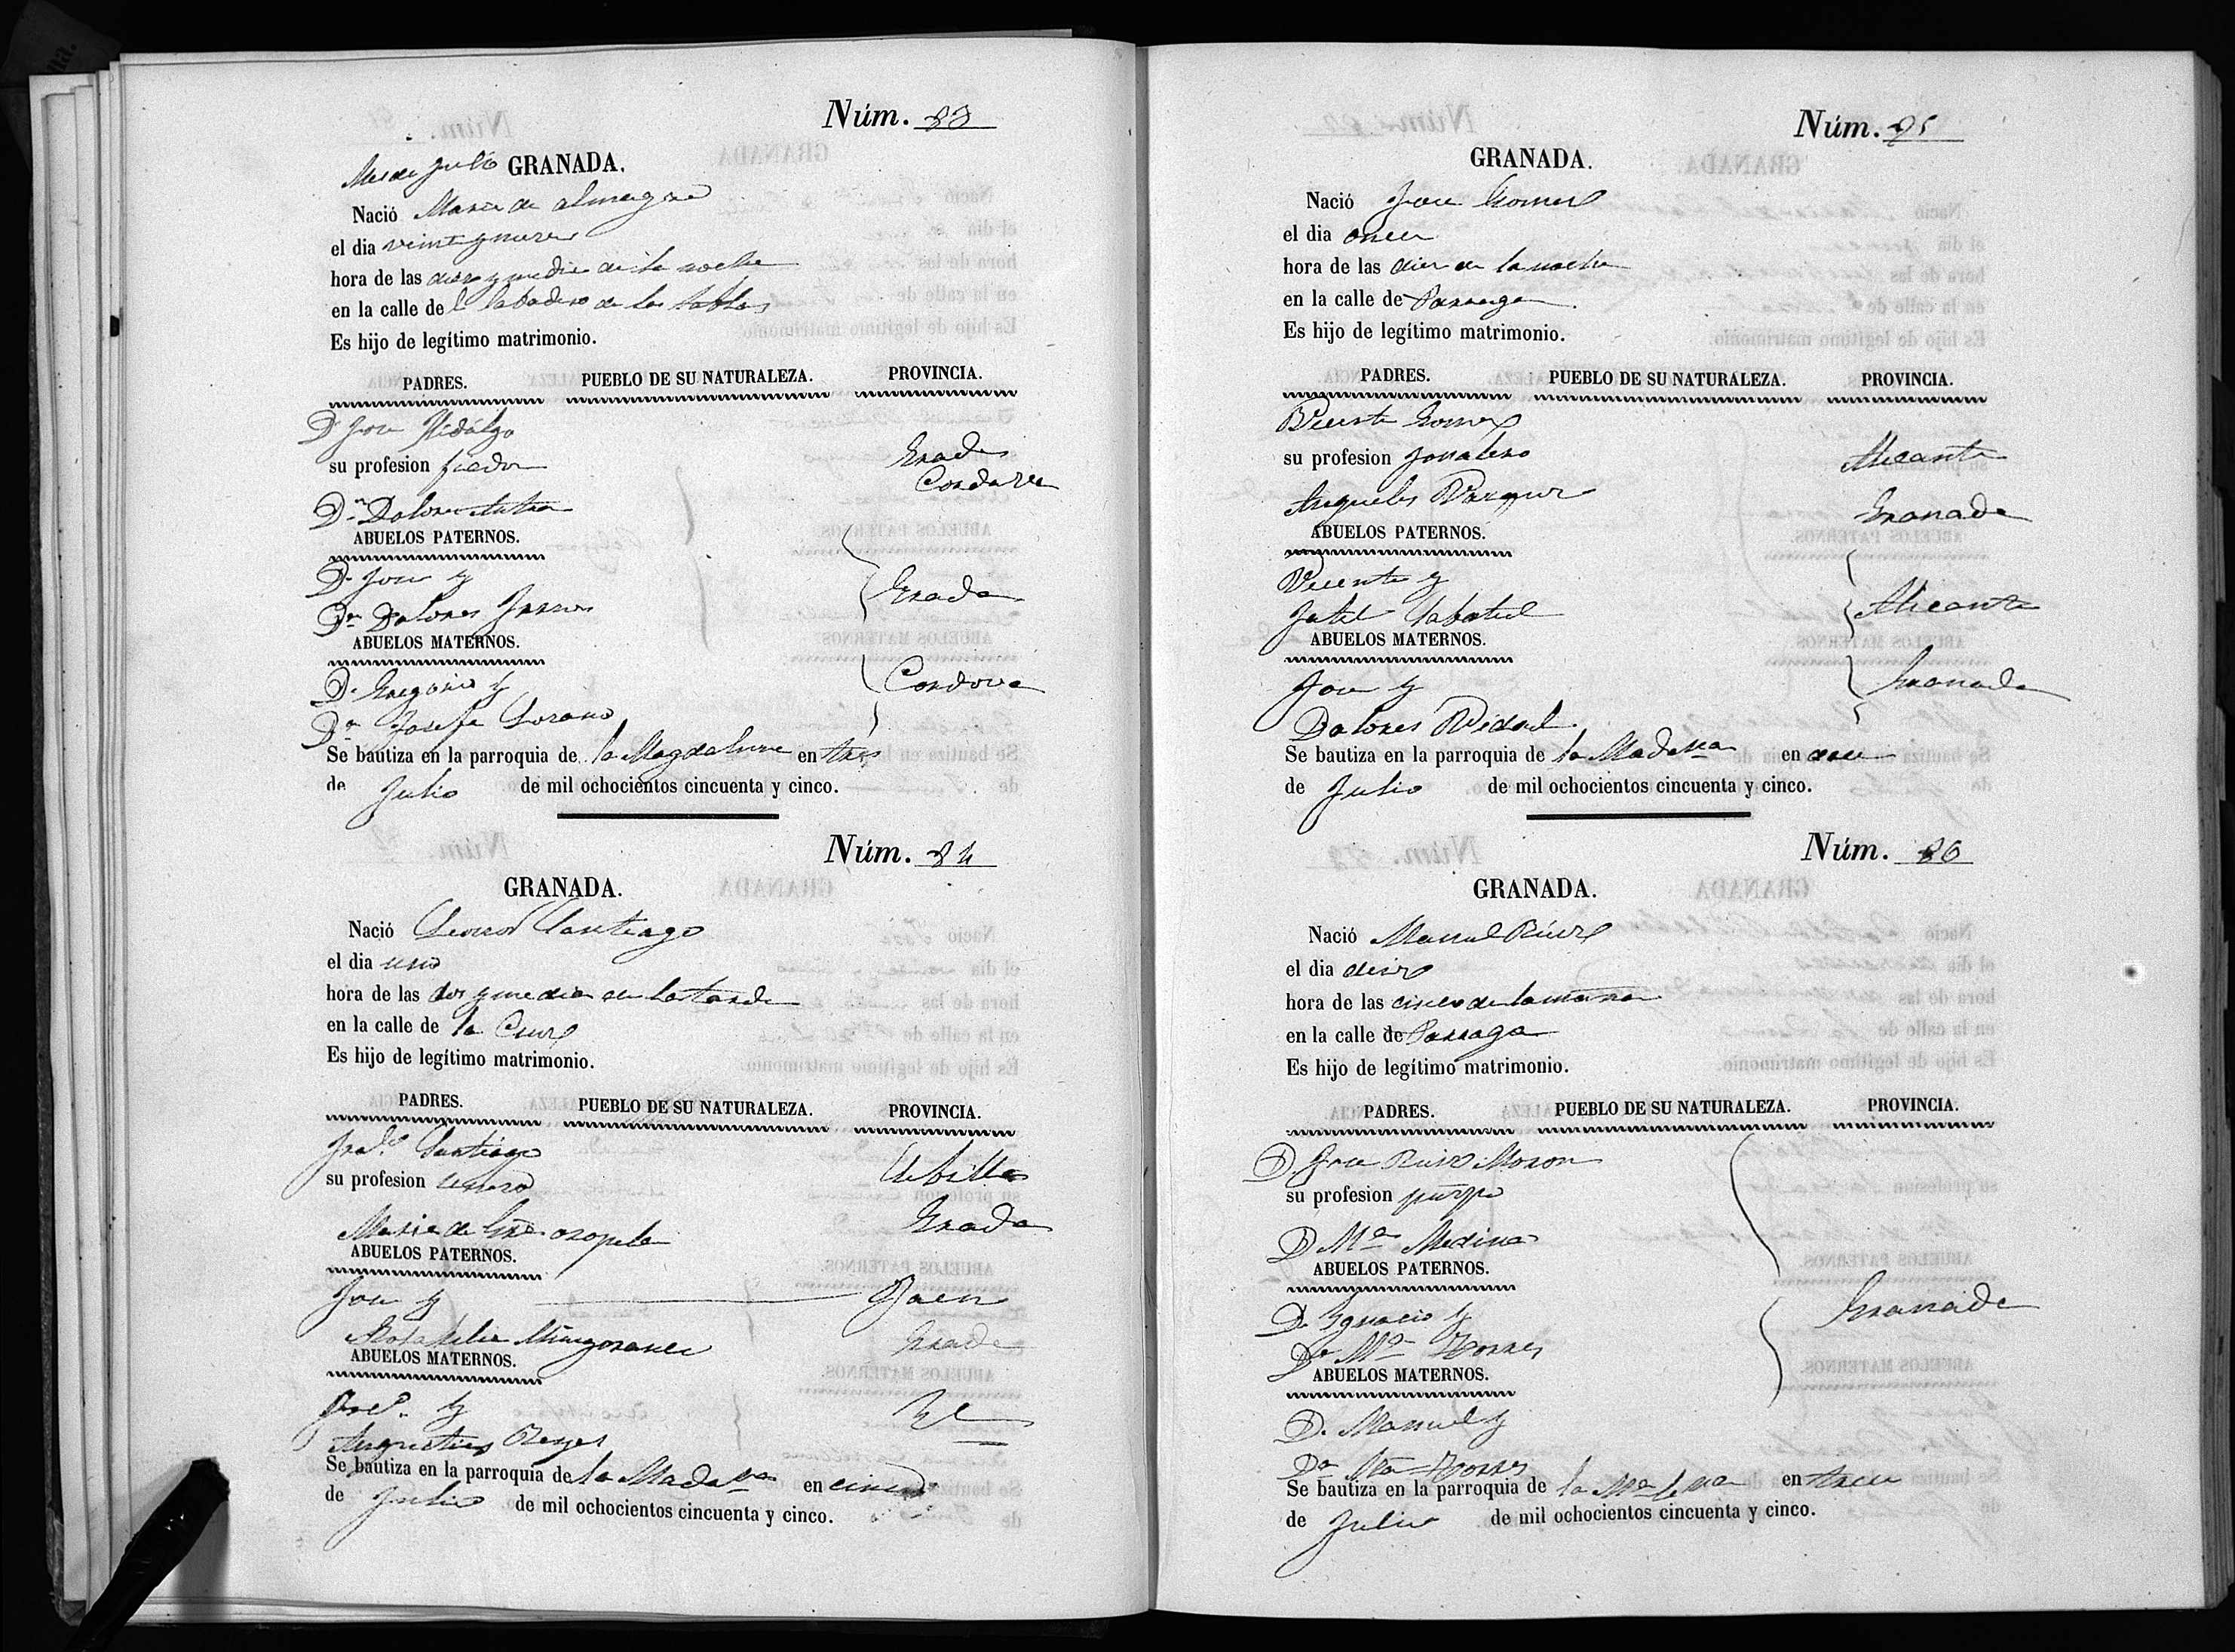 Núm. 83
Mes de Julio GRANADA.
Nació Maria de
el dia veintynueve
hora de las diez y media de la noche
en la calle del labadero de las tablas
Es hijo de legítimo matrimonio.
PADRES. PUEBLO DE SU NATURALEZA. PROVINCIA.
D Jose Hidalgo
su profesion Grada
Cordova
Dª Dolores
ABUELOS PATERNOS.
D. Jose y
Dª Dolores Grada
ABUELOS MATERNOS.
D. Gregorio y Cordova
Dª Josefa Lozano
Se bautiza en la parroquia de la Magdalena en tres
de Julio de mil ochocientos cincuenta y cinco.
Núm. 84
GRANADA.
Nació Santiago
el dia uno
hora de las dos y media de la tarde
en la calle de la Cruz
Es hijo de legítimo matrimonio.
PADRES. PUEBLO DE SU NATURALEZA. PROVINCIA.
Santiago
su profesion
Maria de Grada
ABUELOS PATERNOS.
Jose y Jaen
Grada
ABUELOS MATERNOS.
y
Angustias Reyes
Se bautiza en la parroquia de la Madªna en cinco
de Julio de mil ochocientos cincuenta y cinco.
Núm. 85
GRANADA.
Nació Jose Gomez
el dia once
hora de las diez de la noche
en la calle de Parraga
Es hijo de legítimo matrimonio.
PADRES. PUEBLO DE SU NATURALEZA. PROVINCIA.
Vicente Gomez
su profesion Jornalero Alicante
Angueles Vazquez Granada
ABUELOS PATERNOS.
Vicente y
Alicante
ABUELOS MATERNOS.
Jose y Granada
Dolores Vidal
Se bautiza en la parroquia de la Madªna en
de Julio de mil ochocientos cincuenta y cinco.
Núm. 86
GRANADA.
Nació Manuel Ruiz
el dia diez
hora de las cinco de la mañana
en la calle de Parraga
Es hijo de legítimo matrimonio.
PADRES. PUEBLO DE SU NATURALEZA. PROVINCIA.
D. Jose Ruiz Moron
su profesion
D Mª Medina
ABUELOS PATERNOS.
D. Ygnacio y Granada
Dª Mª Torres
ABUELOS MATERNOS.
D. Manuel y
Dª Torres
Se bautiza en la parroquia de la en trece
de Julio de mil ochocientos cincuenta y cinco.